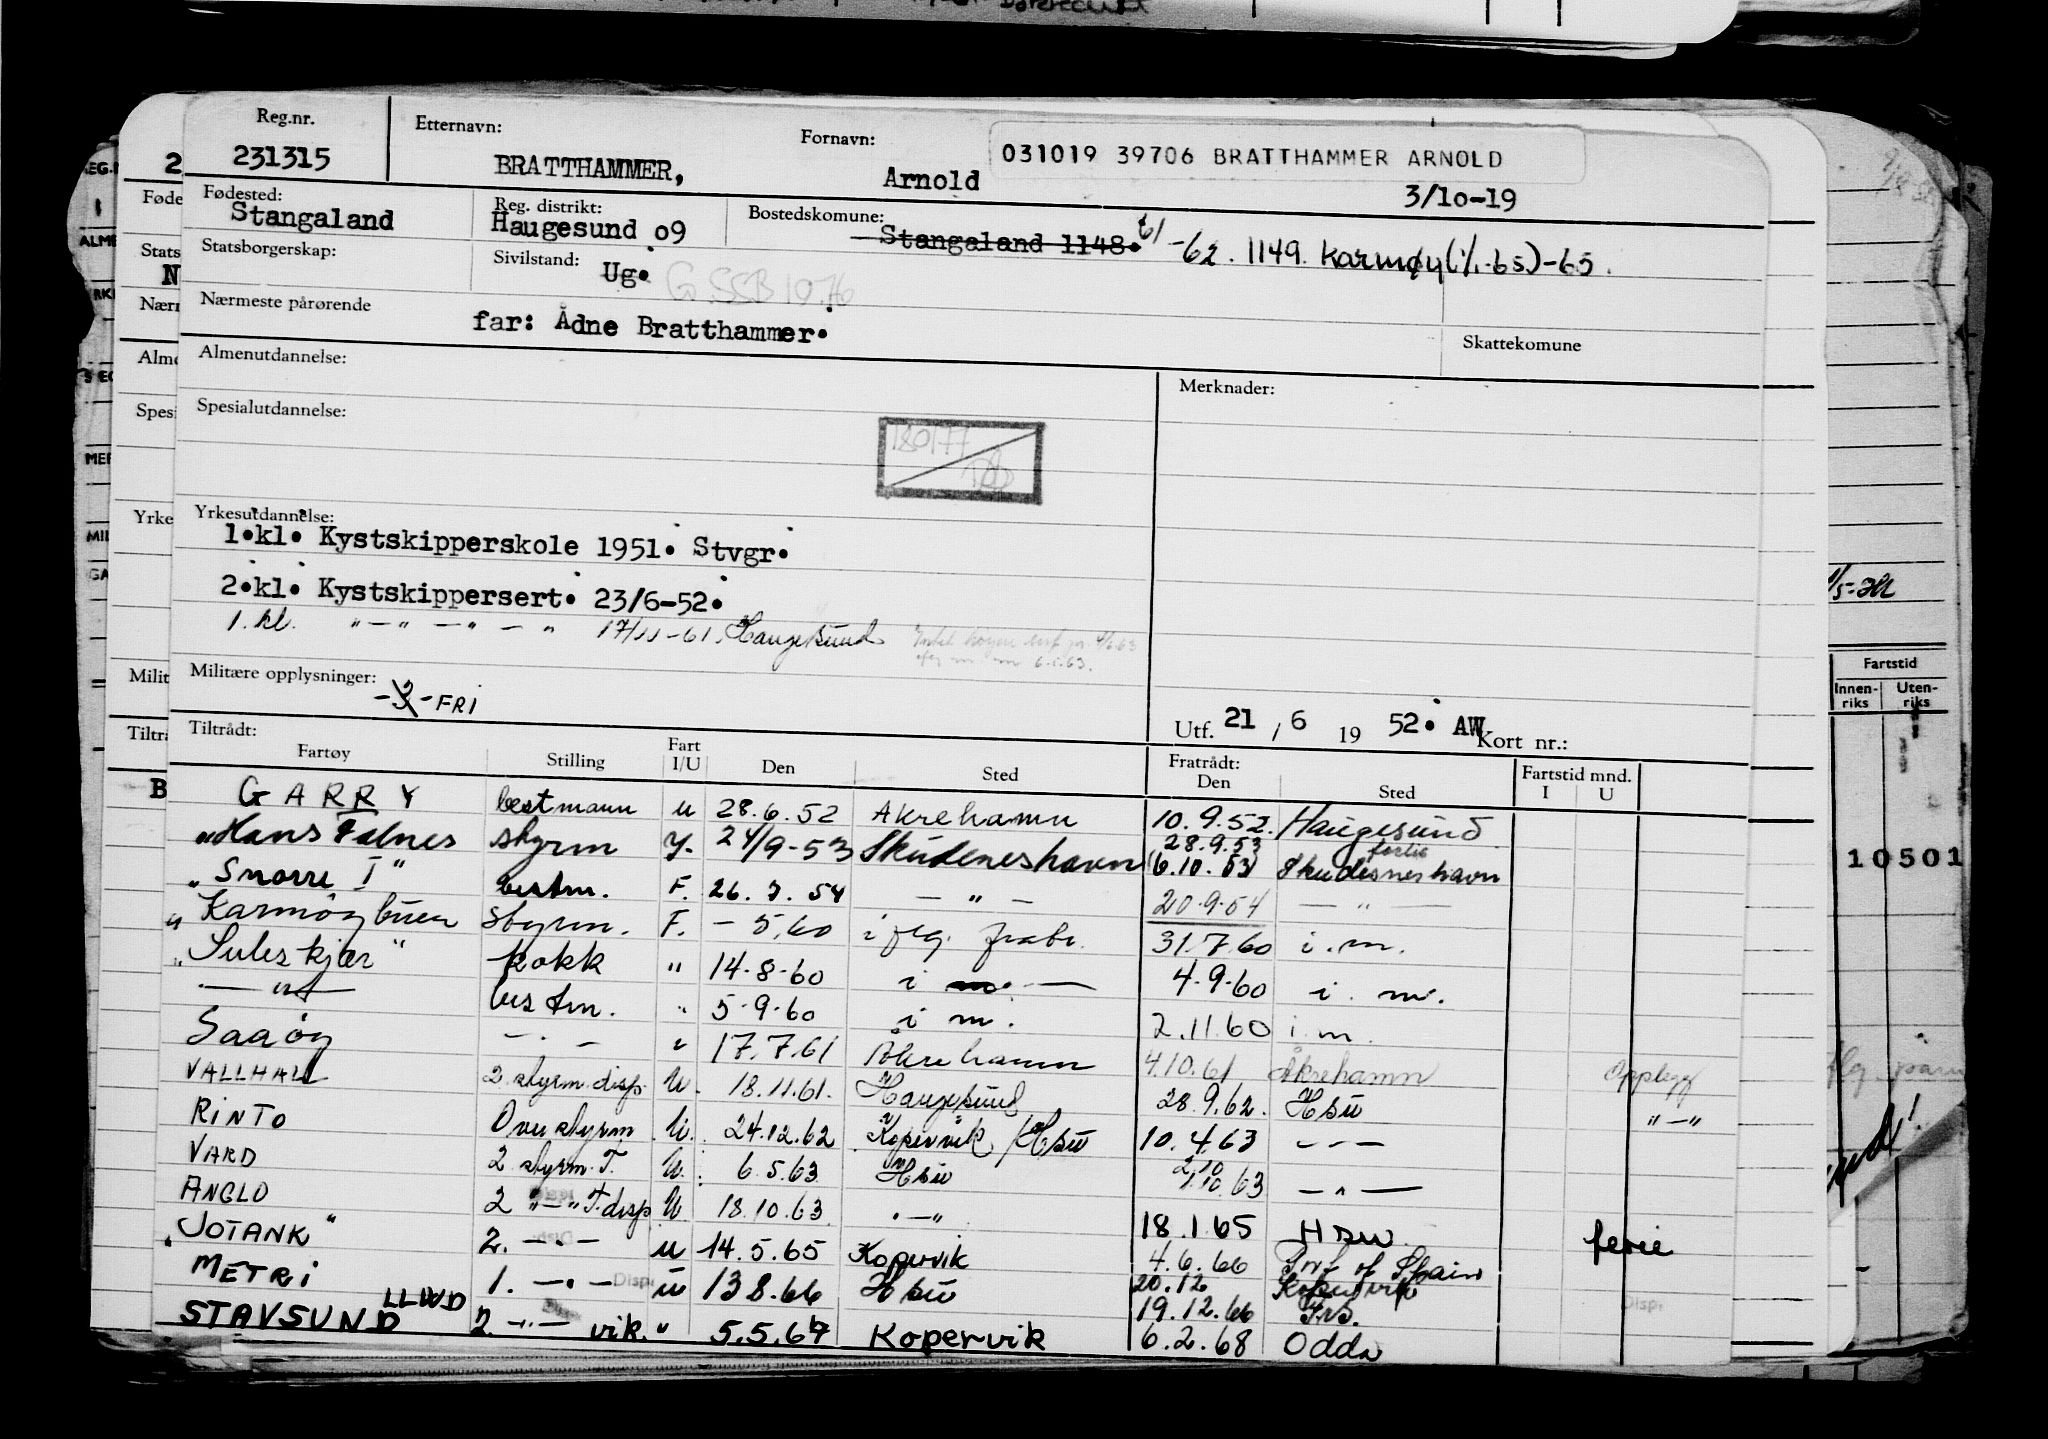 Reg.nr. Etternavn: Fornavn:
231315 BRATTHAMMER, Arnold 031019 39706 BRATTHAMMER ARNOLD
3/10-19
Fødested: Reg. distrikt: Bostedskomune:
Stangaland Haugesund 09 Stangaland 1148. 61 -62. 1149. Karmøy (1/1-65)-65.
Statsborgerskap: Sivilstand: Ug. G SSB 10.76
Nærmeste pårørende
far: Ådne Bratthammer.
Skattekomune
Almenutdannelse: Merknader:
Spesialutdannelse:
180177
Yrkesutdannelse:
1.kl. Kystskipperskole 1951. Stvgr.
2.kl. Kystskippersert. 23/6-52.
1. kl. "—" —" — " 17/11-61. Haugesund
Militære opplysninger:
-2- FRI
Utf. 21 / 6 19 52. AW Kort nr.:
Tiltrådt: Fratrådt: Fartstid mnd.
Fartøy Stilling Fart I/U Den Sted Den Sted I U
GARRY bestmann u 28.6.52 Akrehamn 10.9.52. Haugesund
"Hans Falnes styrm 24/9-53 Skudeneshavn 28.9.53
6.10.53 Skudesneshavn
"Snorre I" bestm. F. 26.7.54 — " — 20.9.54 — " —
"Karmøybuen styrm. F. - 5.60 i flg. 31.7.60 i.m.
"Suleskjær" kokk " 14-8-60 i m. — 4.9.60 i. m.
— " — bestm. " 5-9-60 i m. 2.11.60 i m
Saaøy — . — " 17.7.61 Åkrehamn 4.10.61 Åkrehamn
VALLHALL 2. styrm. disp. U. 18.11.61. Haugesund 28.9.62. Hsu Opplegg
RINTO Overstyrm U. 24.12.62 Kopervik / Hsu 10.4.63 — — — "—"
VARD 2 styrm. T. U. 6.5.63 Hsu 2/10 63 — " —
ANGLO 2 "—" T. disp U. 18.10.63 "—" 18.1.65 Hsu. ferie
"JOTANK" 2. — " — u 14.5.65 Kopervik 4.6.66 Prt of Spain
METRI 1. — " — Disp u 13.8.66 Hsu 20.12 Kopervik
19.12.66
STAVSUND LLWD 2. — " — vik. " 5.5.67 Kopervik 6.2.68 Odda
Fartstid
Innen-riks Uten-riks
10501